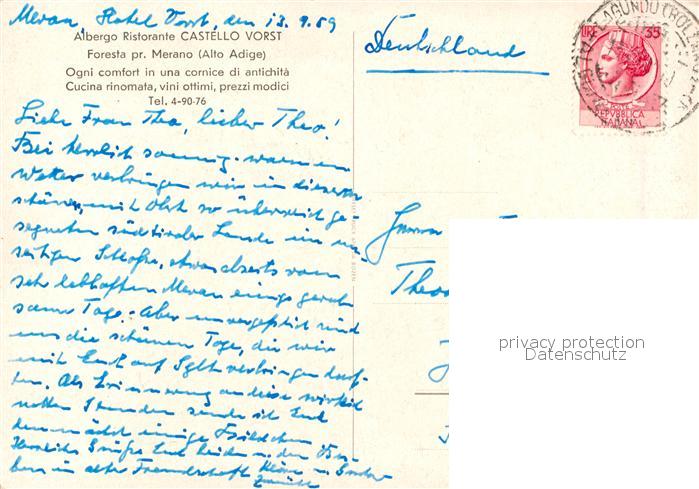 Meran, Hotel Vorst, den 13.9.59
Albergo Ristorante CASTELLO VORST
Foresta pr. Merano (Alto Adige)
Ogni comfort in una cornice di antichità
Cucina rinomata, vini ottimi, prezzi modici
Tel. 4-90-76
Liebe Frau Thea, lieber Theo!
Bei herrlich sonnig-warmem
Wetter verbringen wir in diesem
schönen, mit Obst so überreich ge-
segneten südtiroler Lande
Schlosse, etwas abseits vom
sehr lebhaften Meran einige geruh-
same Tage. Aber unvergeßlich sind
uns die schönen Tage, die wir
mit Euch auf Sylt verbringen durf-
ten. Als Erinnerung an diese wirklich
netten Stunden sende ich Euch
demnächst einige Bildchen.
Herzliche Grüße Euch beiden u. den
in alter Freundschaft
Deutschland
LIRE 35
POSTE
REPVBBLICA
ITALIANA
LAGUNDO (BOLZANO)
Theo
privacy protection
Datenschutz